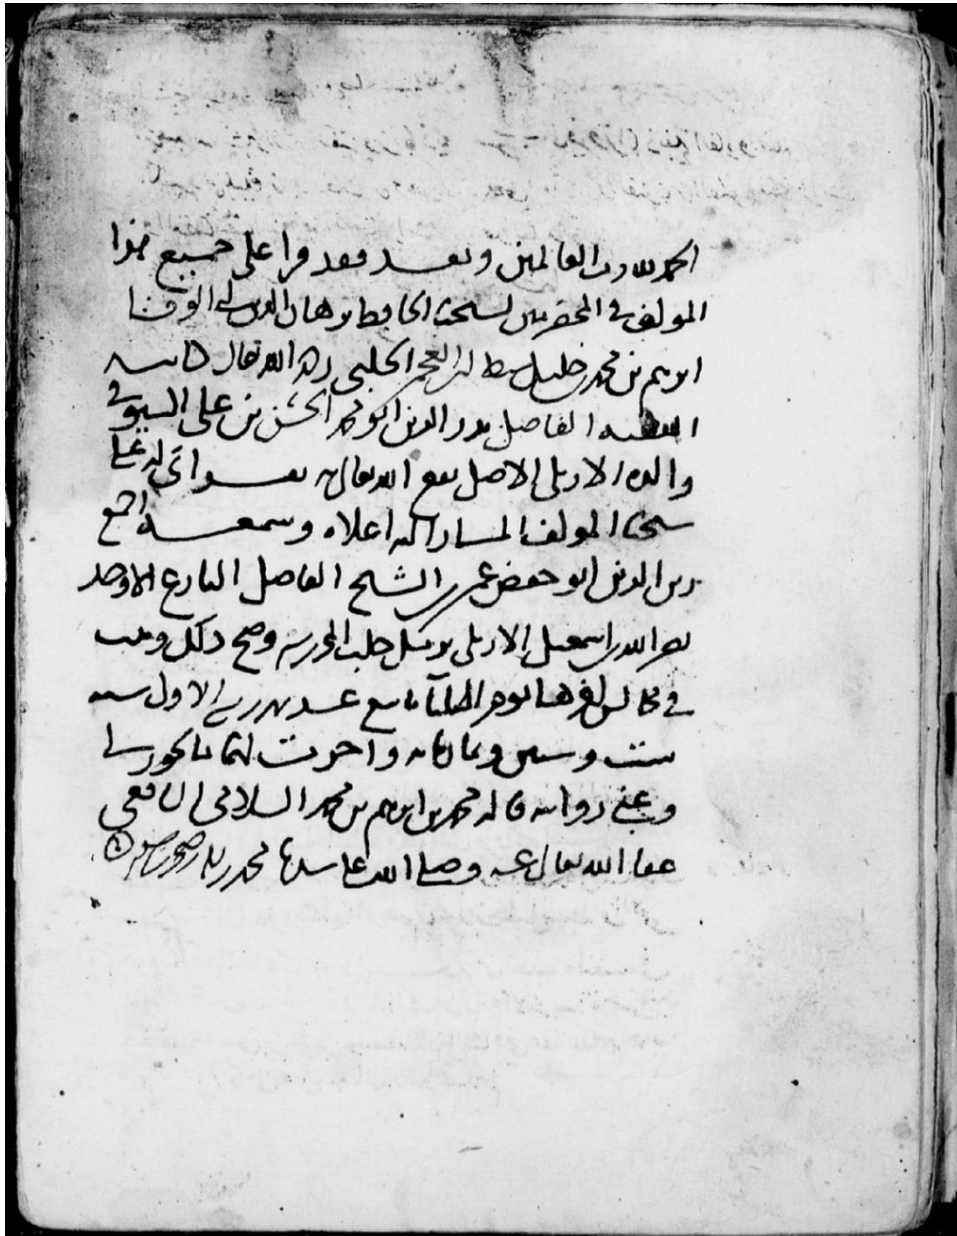 الحمد لله رب العالمين وبعد فقد قرا على جميع هذا
المولف في المخضرمين لشيخنا الحافظ برهان الدين ابي الوفا
ابرهيم بن محمد بن خليل سبط ابن العجمي الحلبي رحمه الله تعالى كاتبه
الفقيه الفاضل بدر الدين ابو محمد الحسن بن علي السيوفي
والده الاربلي الاصل نفع الله تعالى به
شيخنا المولف المشار اليه اعلاه وسمعه اجمع
زين الدين ابو حفص عمر بن الشيخ الفاضل البارع الاوحد
نصر الله بن اسمعيل الاربلي حلب المحروسه وصح ذلك وثبت
في مجالس اخرها يوم الثلثا تاسع عشر شهر ربيع الاول سنه
ست وستين وثمان مائه واجزت لهما ما يجوز لي
وعني روايته قاله محمد بن ابرهيم بن محمد السلامي الشافعي
عفا الله تعالى عنه وصلى الله على سيدنا محمد واله وصحبه وسلم